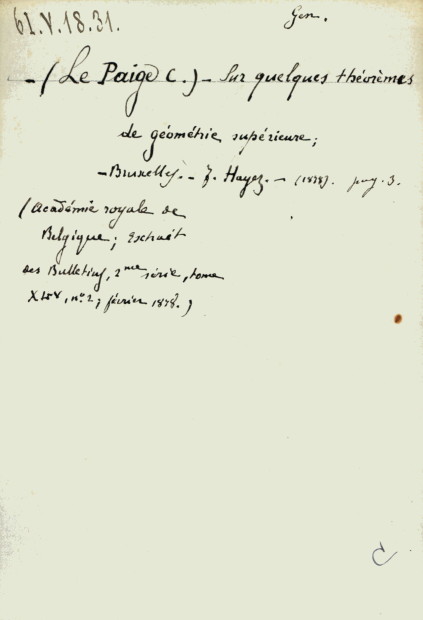 61.V.18.31.
Gen.
- (Le Paige C.) - Sur quelques théorèmes
de géométrie supérieure;
- Bruxelles. - F. Hayez. - (1878). pag. 3.
(Académie royale de
Belgique; Extrait
des Bulletins, 2me série, tome
XLV, no. 2; février 1878.)
C